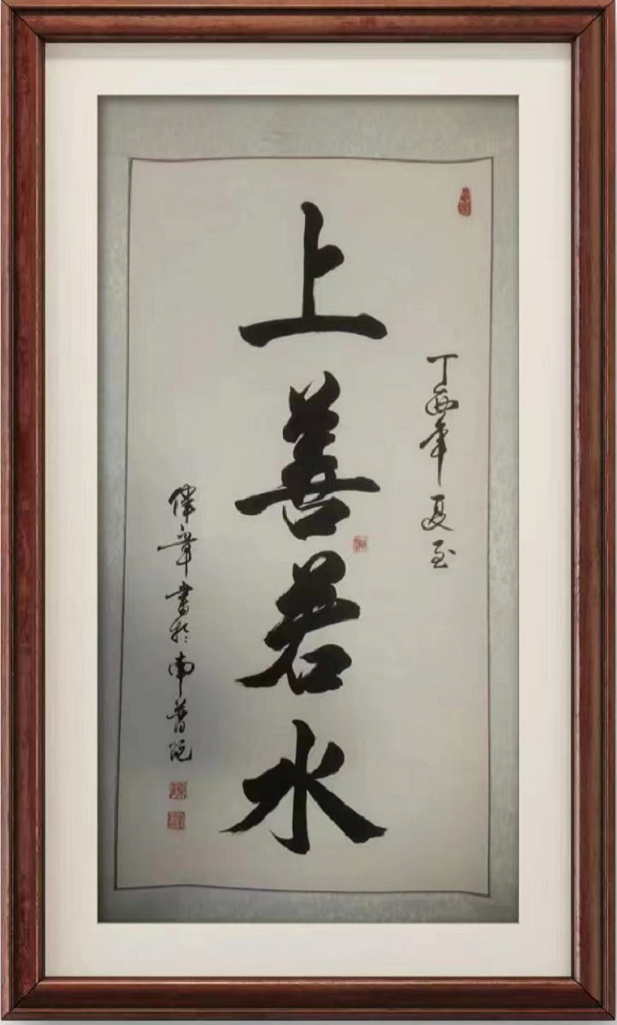 丁酉年 夏至
上善若水
伟章书於南普陀